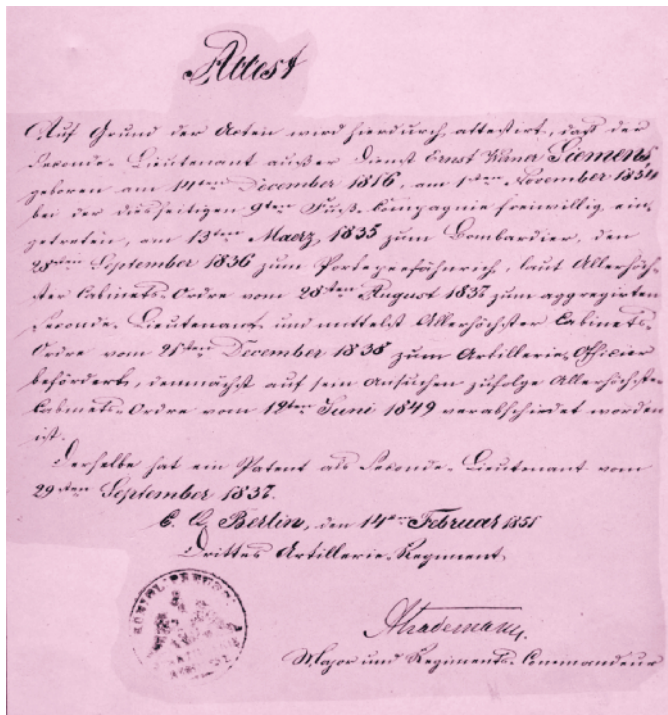 Attest
Auf Grund der Acten wird hierdurch attestirt, daß der
Seconde-Lieutenant außer Dienst Ernst Werner Siemens,
geboren am 14ten December 1816, am 1sten November 1834
bei der diesseitigen 9ten Fuß-Compagnie freiwillig ein-
getreten, am 13ten Maerz 1835 zum Bombardier, den
September 1836 zum Porteepeefähnrich, laut Allerhöch-
ster Cabinets-Ordre vom 28ten August 1837 zum aggregirten
Seconde-Lieutenant und mittelst Allerhöchster Cabinets-
Ordre vom December 1838 zum Artillerie-Officier
befördert, demnächst auf sein Ansuchen zufolge Allerhöchster
Cabinets-Ordre vom 12ten Juni 1849 verabschiedet worden
ist.
Derselbe hat ein Patent als Seconde-Lieutenant vom
29sten September 1837.
Berlin, den 14ten Februar 1851
Drittes Artillerie-Regiment
Major und Regiments-Commandeur
KÖNIGL. PREUSS.